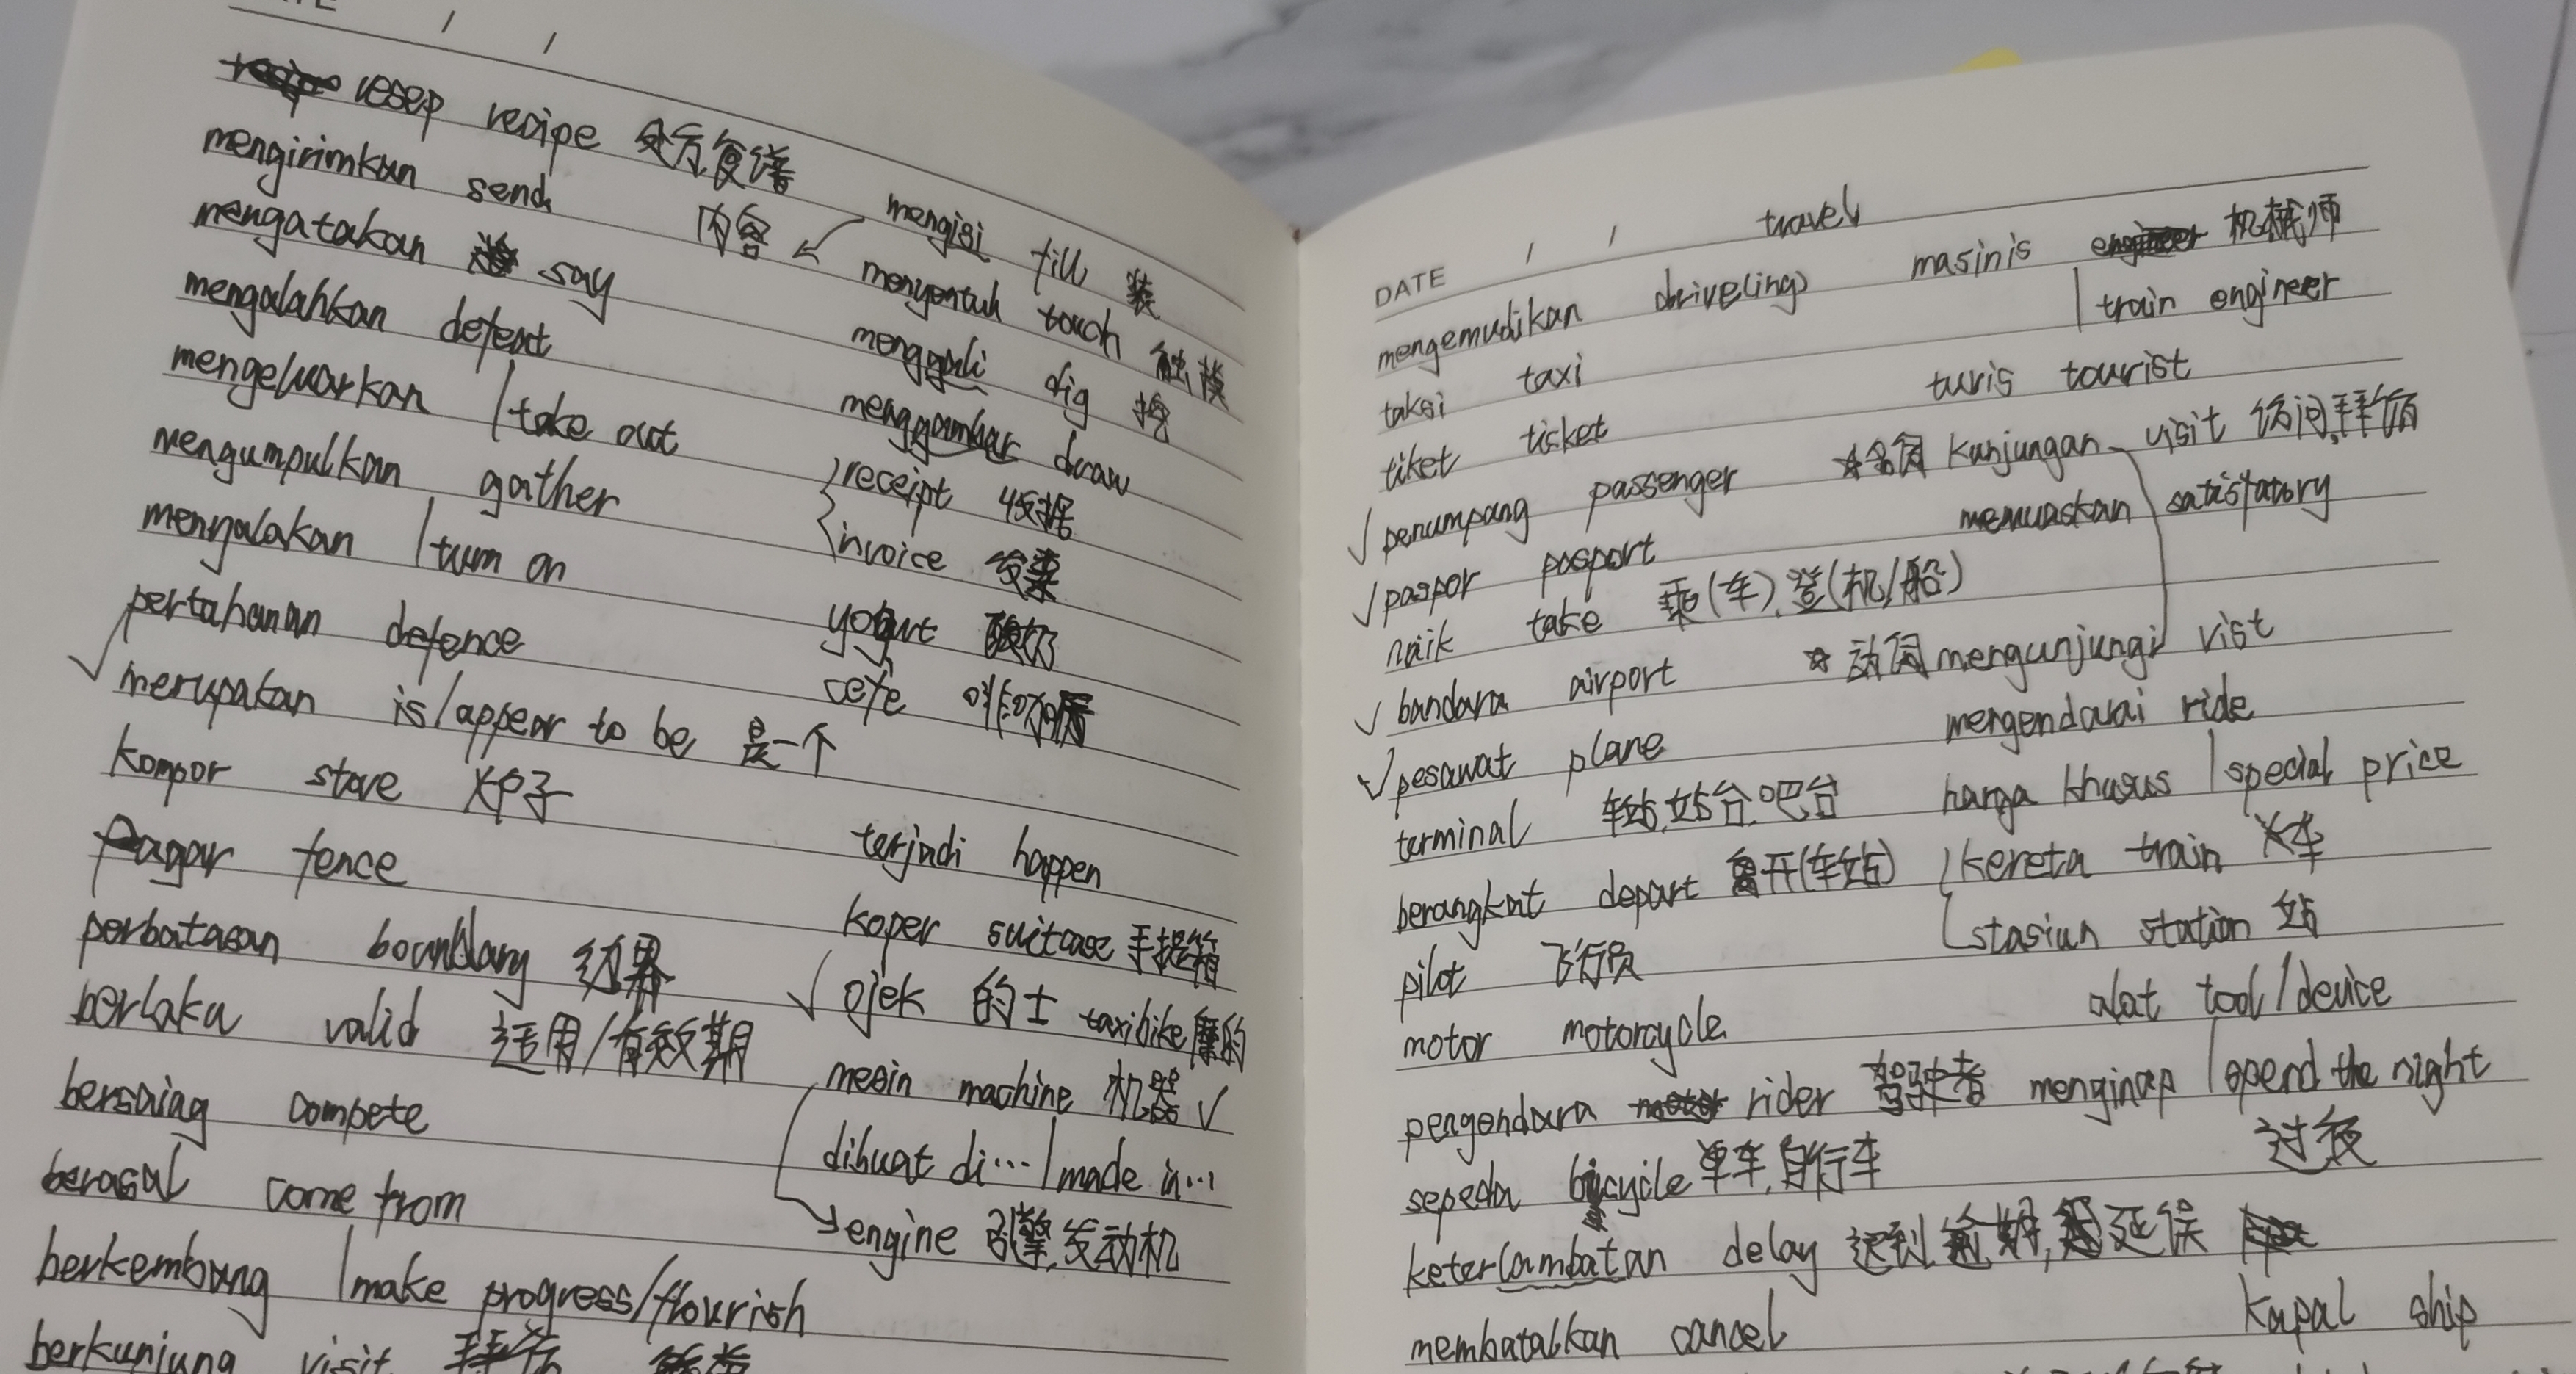 resep recipe 处方,食谱
mengirimkan send
mengatakan say
mengalahkan defeat
mengeluarkan | take out
mengumpulkan gather
menyalakan | turn on
pertahanan defence
✓ merupakan is/appear to be 是一个
kompor stove 火炉子
Pagar fence
perbatasan boundary 边界
berlaku valid 适用/有效期
bersaing compete
berasal come from
berkembang | make progress/flourish
berkunjung visit
内容 ↙ mengisi fill 装
menyentuh touch 触摸
menggali dig 挖
menggambar draw
receipt 收据
invoice 发票
yogurt 酸奶
cefe 咖啡厅
terjadi happen
koper suitcase 手提箱
✓ ojek 的士 taxibike 摩的
mesin machine 机器 ✓
dibuat di... | made in...
engine 引擎,发动机
travel
DATE / /
mengemudikan drive(ing)
taksi taxi
tiket ticket
✓ penumpang passenger
✓ paspor pasport
naik take 乘(车),登(机/船)
✓ bandara airport
✓ pesawat plane
terminal 车站,站台,吧台
berangkat depart 离开(车站)
pilot 飞行员
motor motorcycle
pengendara rider 驾驶者
sepeda bicycle 单车,自行车
keterlambatan delay 迟到, 延误
membatalkan cancel
masinis 机械师
| train engineer
turis tourist
☆名词 kunjungan visit 访问,拜访
memuaskan satisfatory
☆动词 mengunjungi vist
mengendarai ride
harga khusus | special price
kereta train 火车
stasiun station 站
alat tool/device
menginap | spend the night
过夜
kapal ship